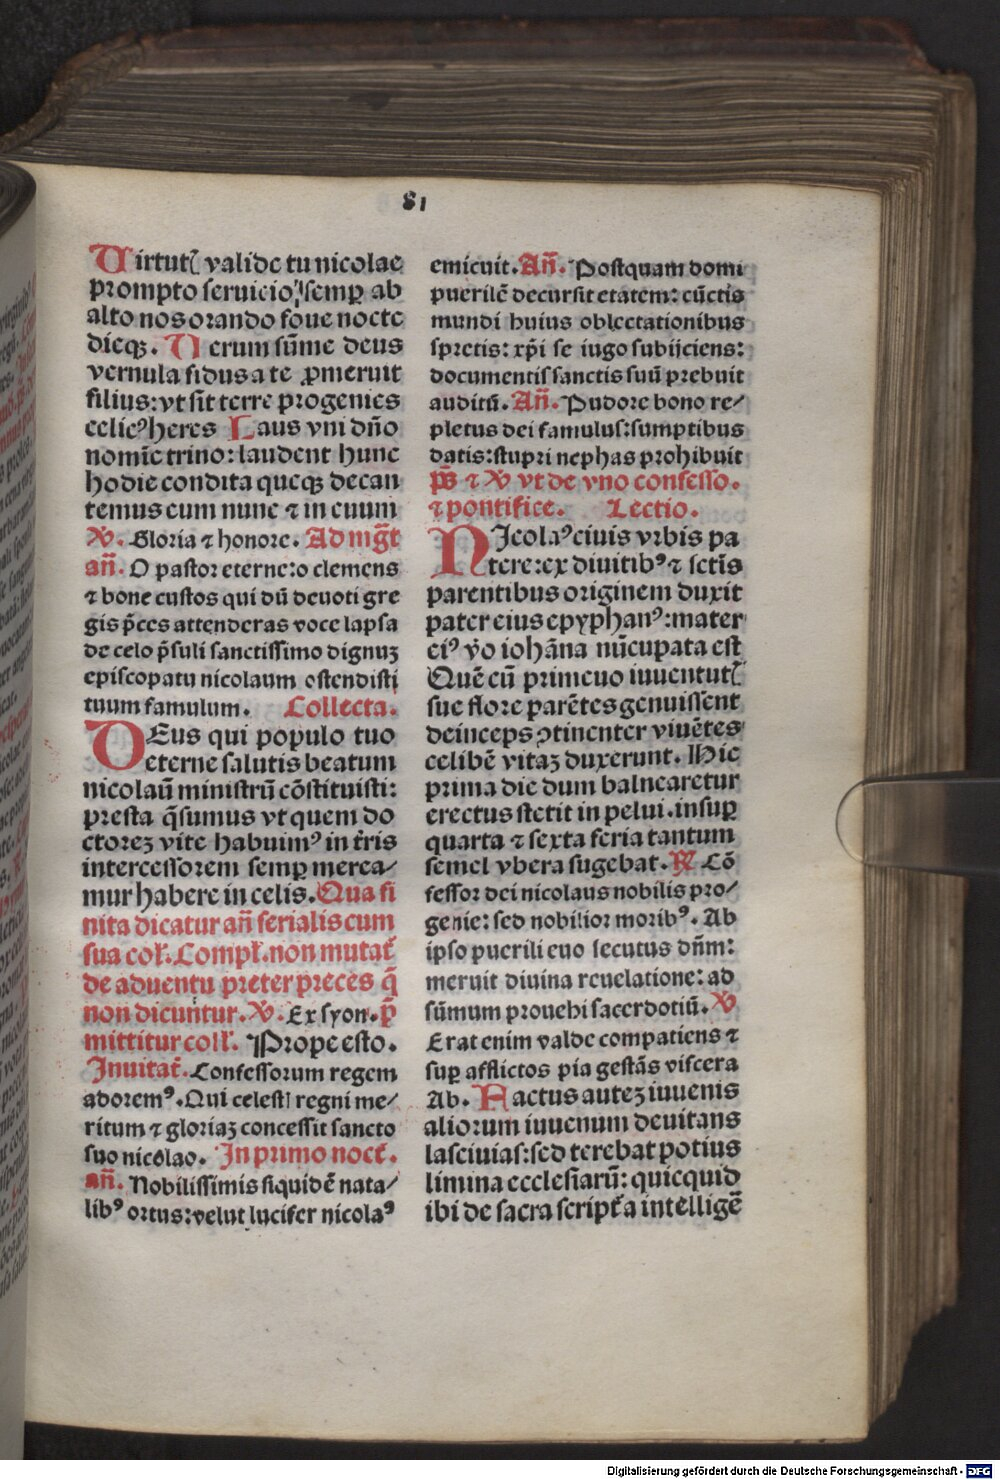 81
Virtutꝭ valide tu nicolae
prompto seruicio, semꝑ ab
alto nos orando foue nocte
dieqꝫ. Uerum sūme deus
vernula fidus a te ꝓmeruit
filius: vt sit terre progenies
celicꝰ heres Laus vni dn̄o
nomīe trino: laudent hunc
hodie condita queqꝫ decan
temus eum nunc ⁊ in euum
℣. Gloria ⁊ honore. Ad mg̅t
an̄. O pastor eterne: o clemens
⁊ bone custos qui dū deuoti gre
gis p̄ces attenderas voce lapsa
de celo p̄suli sanctissimo dignuꝫ
episcopatu nicolaum ostendisti
tuum famulum. Collecta.
DEus qui populo tuo
eterne salutis beatum
nicolaū ministrū cōstituisti:
presta q̄sumus vt quem do
ctoreꝫ vite habuimꝰ in t̄ris
intercessorem semꝑ merea⸗
mur habere in celis. Qua fi
nita dicatur an̄ ferialis cum
sua col̄. Compl̄. non mutat̄
de aduentu preter preces q̄
non dicuntur. ℣. Ex syon. p̄
mittitur coll̄. Prope esto.
Inuitat̄. Confessorum regem
adoremꝰ. Qui celesti regni me⸗
ritum ⁊ gloriaꝫ concessit sancto
suo nicolao. In primo noct̄.
an̄. Nobilissimis siquidē nata⸗
libꝰ ortus: velut lucifer nicolaꝰ
emicuit. An̄. Postquam domi
puerilē decursit etatem: cūctis
mundi huius oblectationibus
spretis: xp̄i se iugo subijciens:
documentis sanctis suū prebuit
auditū. An̄. Pudore bono re⸗
pletus dei famulus: sumptibus
datis: stupri nephas prohibuit
p̄s ⁊ ℣ vt de vno confesso.
⁊ pontifice. Lectio.
NIcolaꝰ ciuis vrbis pa
tere: ex diuitibꝰ ⁊ sctīs
parentibus originem duxit
pater eius epyphanꝰ: mater
eiꝰ v̊o iohāna nūcupata est
Quē cū primeuo iuuentutꝭ
sue flore parētes genuissent
deinceps ꝯtinenter viuētes
celibē vitaꝫ duxerunt. Hic
prima die dum balnearetur
erectus stetit in pelui. insuꝑ
quarta ⁊ sexta feria tantum
semel vbera sugebat. ℟ Cō
fessor dei nicolaus nobilis pro⸗
genie: sed nobilior moribꝰ. Ab
ipso puerili euo secutus dn̄m:
meruit diuina reuelatione: ad
sūmum prouehi sacerdotiū. ℣
Erat enim valde compatiens ⁊
suꝑ afflictos pia gestās viscera
Ab. Factus auteꝫ iuuenis
aliorum iuuenum deuitans
lasciuias: sed terebat potius
limina ecclesiarū: quicquid
ibi de sacra script̄a intelligē
Digitalisierung gefördert durch die Deutsche Forschungsgemeinschaft - DFG